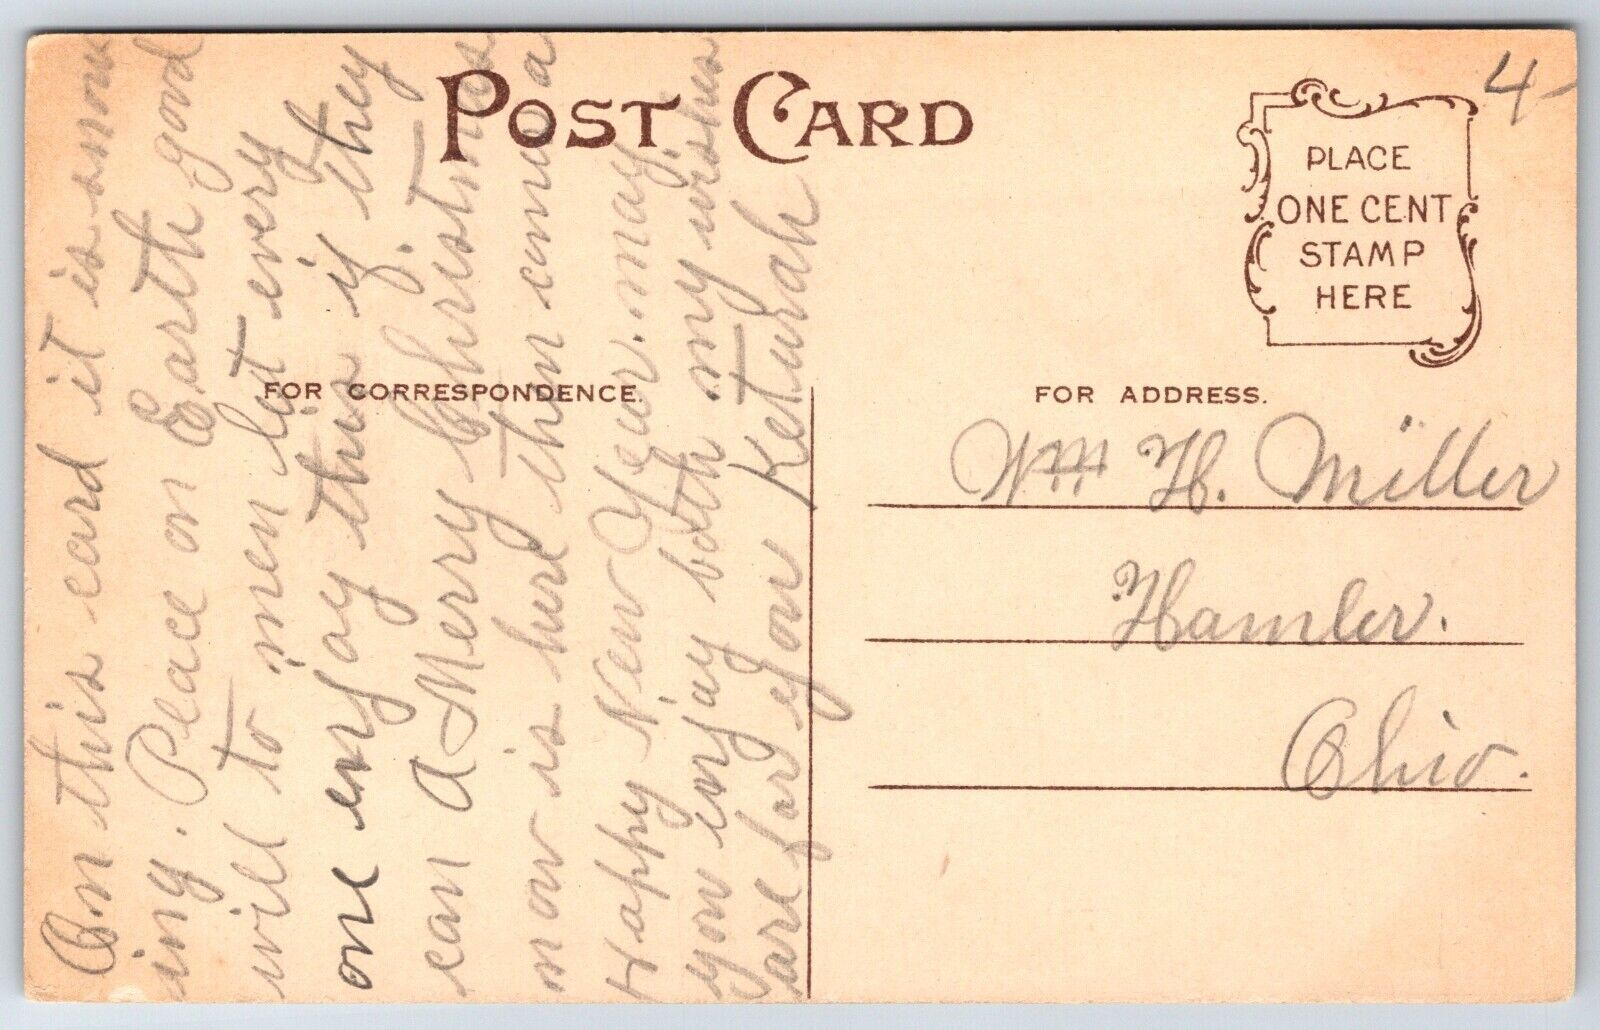 POST CARD
4-
PLACE
ONE CENT
STAMP
HERE
FOR CORRESPONDENCE.
FOR ADDRESS.
On this card it is snow
ing. Place on Earth good
will to men let every
one enjoy this if they
can a Merry Christmas
now is here then comes a
Happy New Year. may
you enjoy both my wishes
are for you Keturah
Wm H. Miller
Hamler.
Ohio.